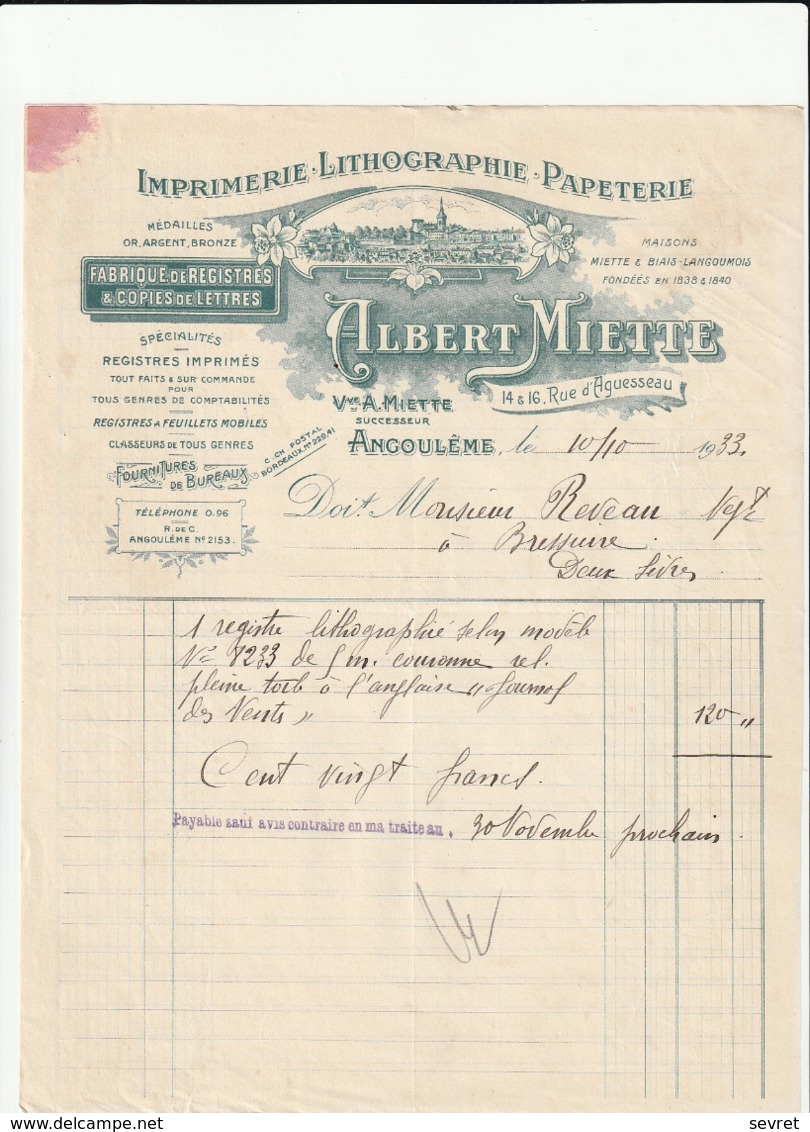 IMPRIMERIE · LITHOGRAPHIE · PAPETERIE
MÉDAILLES
OR, ARGENT, BRONZE
FABRIQUE DE REGISTRES
& COPIES DE LETTRES
MAISONS
MIETTE & BIAIS-LANGOUMOIS
FONDÉES EN 1838 & 1840
ALBERT MIETTE
14 & 16, Rue d'Aguesseau
SPÉCIALITÉS
REGISTRES IMPRIMÉS
TOUT FAITS & SUR COMMANDE
POUR
TOUS GENRES DE COMPTABILITÉS
REGISTRES A FEUILLETS MOBILES
CLASSEURS DE TOUS GENRES
FOURNITURES
DE BUREAUX
TÉLÉPHONE 0.96
R. DE C.
ANGOULÊME N° 2153.
C. CH. POSTAL
BORDEAUX. N° 229.41
Vve A. MIETTE
SUCCESSEUR
ANGOULÊME, le 10/10 1933.
Doit Monsieur Reveau Négt
à Bressuire
Deux Sèvres
1 registre lithographié selon modèle
N° 8233 de 5 m. couronne rel.
pleine toile à l'anglaise "Journal
des Vents" 120 "
Cent vingt francs.
Payable sauf avis contraire en ma traite au. 30 Novembre prochain.
sevret